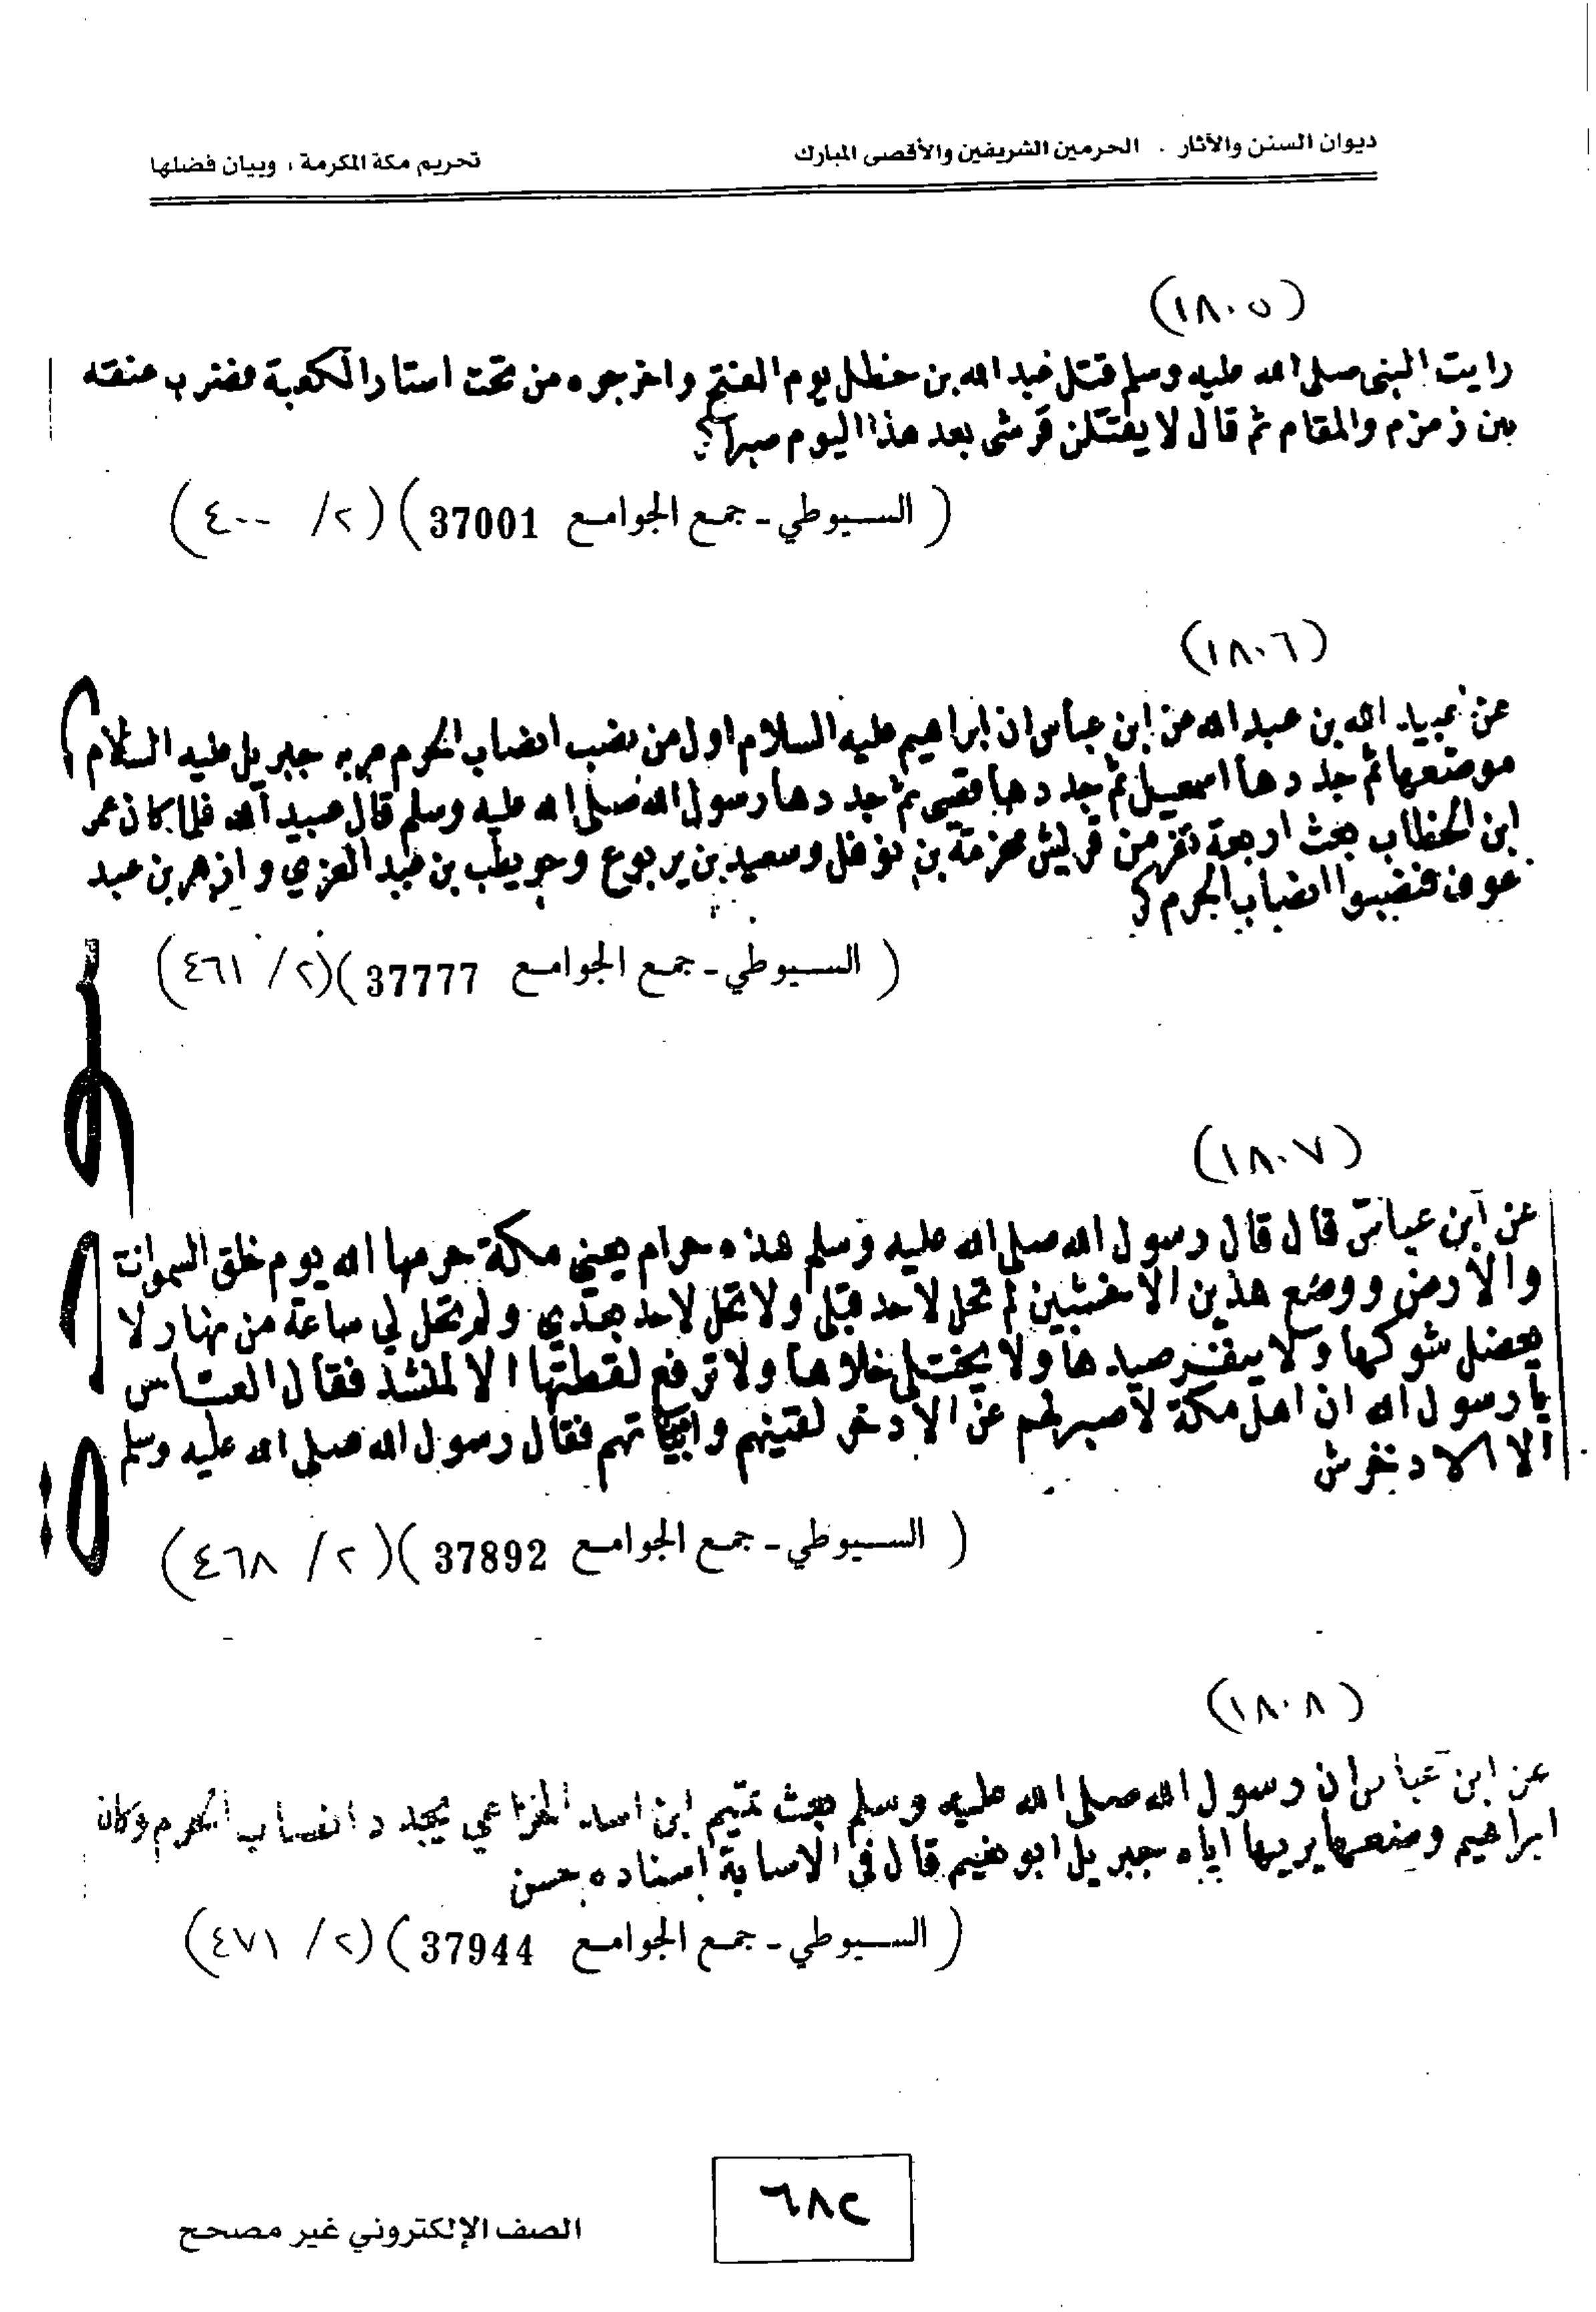 ديوان السنن والآثار . الحرمين الشريفين والأقصى المبارك
تحريم مكة المكرمة ، وبيان فضلها
(١٨٠٥)
رايت النبى صلى الله عليه وسلم قتل عبد الله بن خطل يوم الفتح واخرجوه من تحت استار الكعبة فضرب عنقه
بين زمزم والمقام ثم قال لا يقتلن قرشى بعد هذا اليوم صبرا
( السيوطي - جمع الجوامع 37001 ) (٢/ ٤٠٠)
(١٨٠٦)
عن عبيد الله بن عبد الله عن ابن عباس ان ابراهيم عليه السلام اول من نصب انصاب الحرم جبريل عليه السلام
موضعها ثم جددها اسمعيل ثم جددها قصى ثم جددها رسول الله صلى الله عليه وسلم قال عبيد الله فلما كان عمر
ابن الخطاب بعث اربعة نفر من قريش مخرمة بن نوفل وسعيد بن يربوع وحويطب بن عبد العزي وازهر بن عبد
عوف فنصبوا انصاب الحرم
( السيوطي - جمع الجوامع 37777 ) (٢/ ٤٦١)
(١٨٠٧)
عن ابن عباس قال قال رسول الله صلى الله عليه وسلم هذه حرام يعني مكة حرمها الله يوم خلق السموات
والارض ووضع هذين الاخشبين لم تحل لاحد قبلي ولا تحل لاحد بعدي ولم تحل لي ساعة من نهار لا
يعضد شوكها ولا ينفر صيدها ولا يختلى خلاها ولا ترفع لقطتها الا لمنشد فقال العباس
يا رسول الله ان اهل مكة لا صبر لهم عن الاذخر لقينهم فقال رسول الله صلى الله عليه وسلم
الا الاذخر ش
( السيوطي - جمع الجوامع 37892 ) (٢/ ٤٦٨)
(١٨٠٨)
عن ابن عباس ان رسول الله صلى الله عليه وسلم بعث تميم ابن اسد الخزاعي يجدد انصاب الحرم وكان
ابراهيم وضعها يريها اياه جبريل ابو نعيم قال فى الاصابة اسناده حسن
( السيوطي - جمع الجوامع 37944 ) (٢/ ٤٧١)
٦٨٢
الصف الإلكتروني غير مصحح